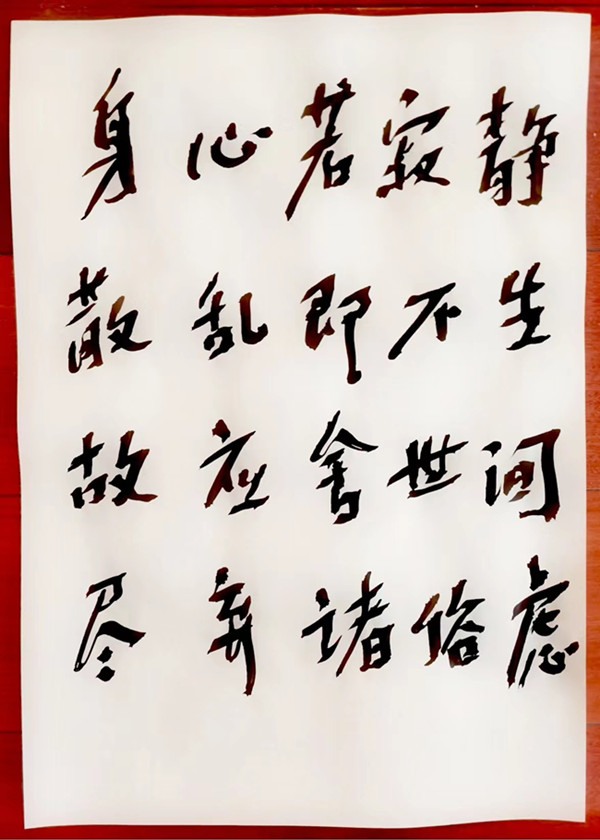 身心若寂静
散乱即不生
故应舍世间
尽弃诸俗虑